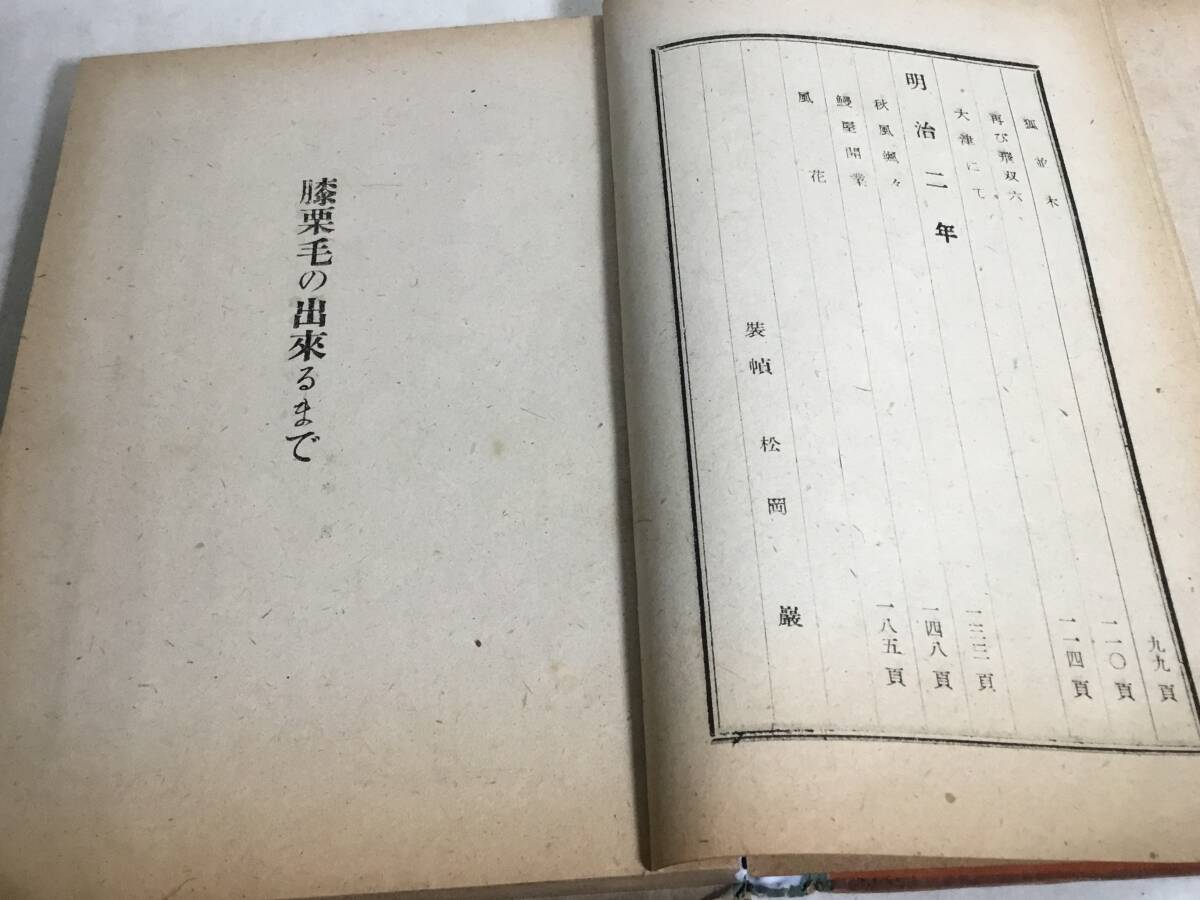 狐 木 九九頁
再び飛双六 一一〇頁
大津にて 一一四頁
明治二年
秋風颯々 一三三頁
鰻屋開業 一四八頁
風花 一八五頁
裝幀 松岡巖
膝栗毛の出來るまで